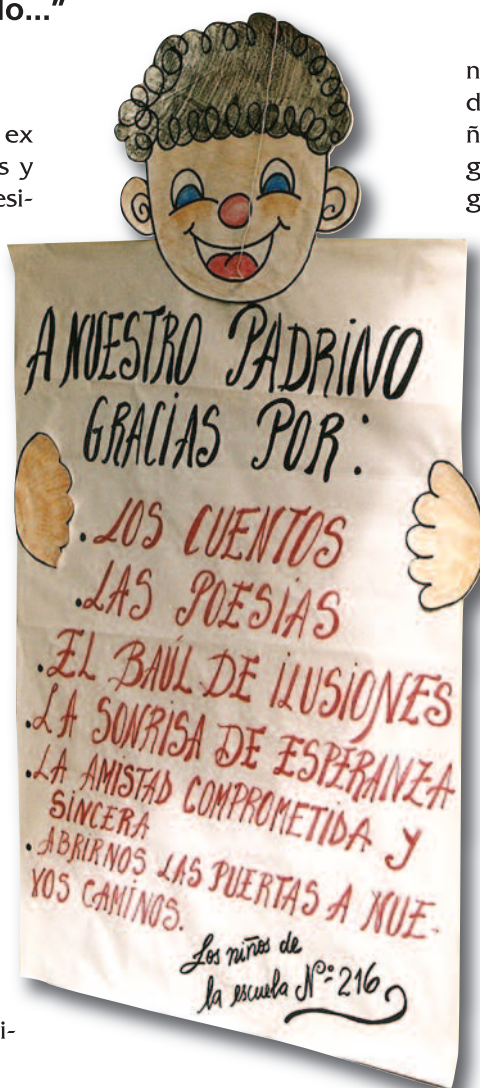 lo..."
ex
s y
esi-
n
d
ñ
g
g
A NUESTRO PADRINO
GRACIAS POR:
.LOS CUENTOS
.LAS POESIAS
.EL BAÚL DE ILUSIONES
.LA SONRISA DE ESPERANZA
.LA AMISTAD COMPROMETIDA Y
SINCERA
.ABRIRNOS LAS PUERTAS A NUE-
VOS CAMINOS.
Los niños de
la escuela Nº: 216
i-